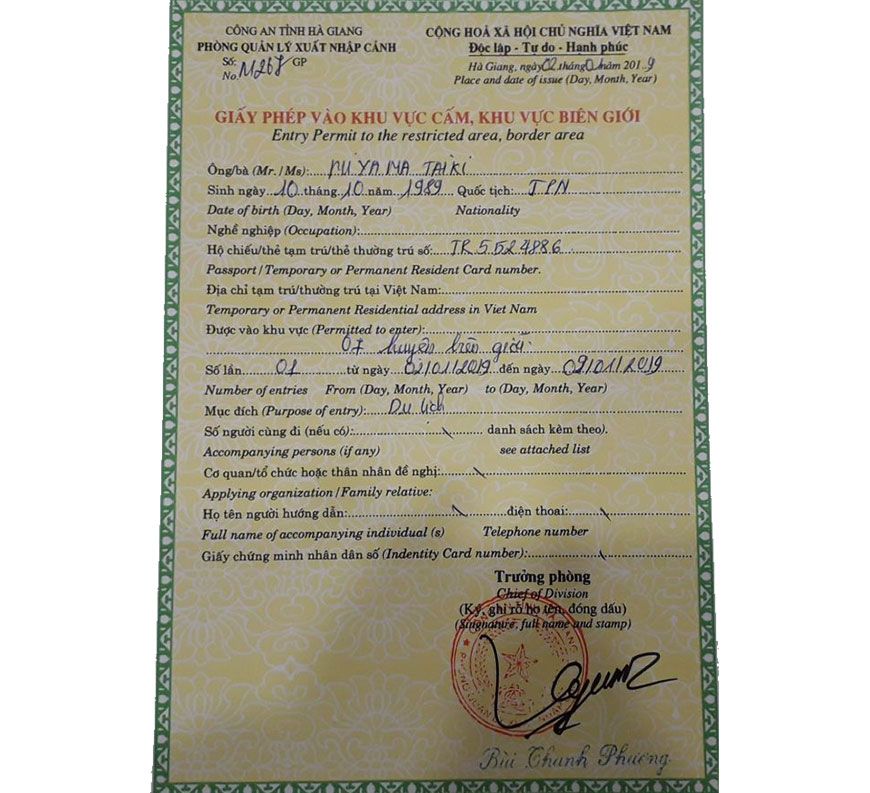 CÔNG AN TỈNH HÀ GIANG
PHÒNG QUẢN LÝ XUẤT NHẬP CẢNH
Số:
No. M267 GP
CỘNG HOÀ XÃ HỘI CHỦ NGHĨA VIỆT NAM
Độc lập - Tự do - Hạnh phúc
Hà Giang, ngày 02 tháng 01 năm 2019
Place and date of issue (Day, Month, Year)
GIẤY PHÉP VÀO KHU VỰC CẤM, KHU VỰC BIÊN GIỚI
Entry Permit to the restricted area, border area
Ông/bà (Mr./Ms): MIYAMA TAIKI
Sinh ngày 10 tháng 10 năm 1989 Quốc tịch: JPN
Date of birth (Day, Month, Year) Nationality
Nghề nghiệp (Occupation):
Hộ chiếu/thẻ tạm trú/thẻ thường trú số: TR5524886
Passport/Temporary or Permanent Resident Card number.
Địa chỉ tạm trú/thường trú tại Việt Nam:
Temporary or Permanent Residential address in Viet Nam
Được vào khu vực (Permitted to enter):
07 huyện biên giới
Số lần 01 từ ngày 02/01/2019 đến ngày 09/01/2019
Number of entries From (Day, Month, Year) to (Day, Month, Year)
Mục đích (Purpose of entry): Du lịch
Số người cùng đi (nếu có): \ danh sách kèm theo).
Accompanying persons (if any) see attached list
Cơ quan/tổ chức hoặc thân nhân đề nghị: \
Applying organization/Family relative:
Họ tên người hướng dẫn: \ điện thoai: \
Full name of accompanying individual (s) Telephone number
Giấy chứng minh nhân dân số (Indentity Card number): \
Trưởng phòng
Chief of Division
(Ký, ghi rõ họ tên, đóng dấu)
(Singnature, full name and stamp)
Bùi Thanh Phương